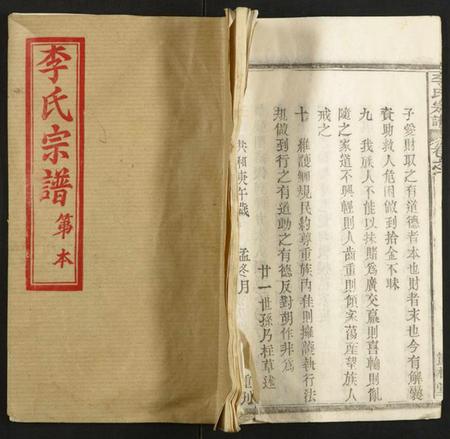 李氏宗譜
第 本
李氏宗譜
子愛財取之有道德者本也財者末也今有解囊
資助救人危困做到拾金不昧
九 我族人不能以抹賭為廣交贏則喜輸則亂
隨之家道不興輕則人齒重則傾家蕩產望族人
戒之
十 維護鄉規民約尊重族內佳則擁護執行法
規做到行之有道動之有德反對胡作非為
廿一世孫乃桂草述
共和庚午歲 孟冬月